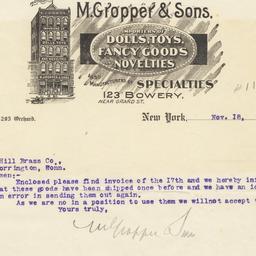 M. Gropper & Sons.
IMPORTERS OF
DOLLS, TOYS,
FANCY GOODS
NOVELTIES
AND
MANUFACTURERS OF
SPECIALTIES
123 BOWERY.
NEAR GRAND ST.
203 Orchard.
New York, Nov. 18,
Hill Brass Co.,
orrington, Wonn.
men:-
Enclosed please find invoice of the 17th and we hereby inf
at these goods have been shipped once before and we have an id
n error in sending them out again.
As we are no in a position to use them we will not accept
Yours truly,
M Gropper & Sons